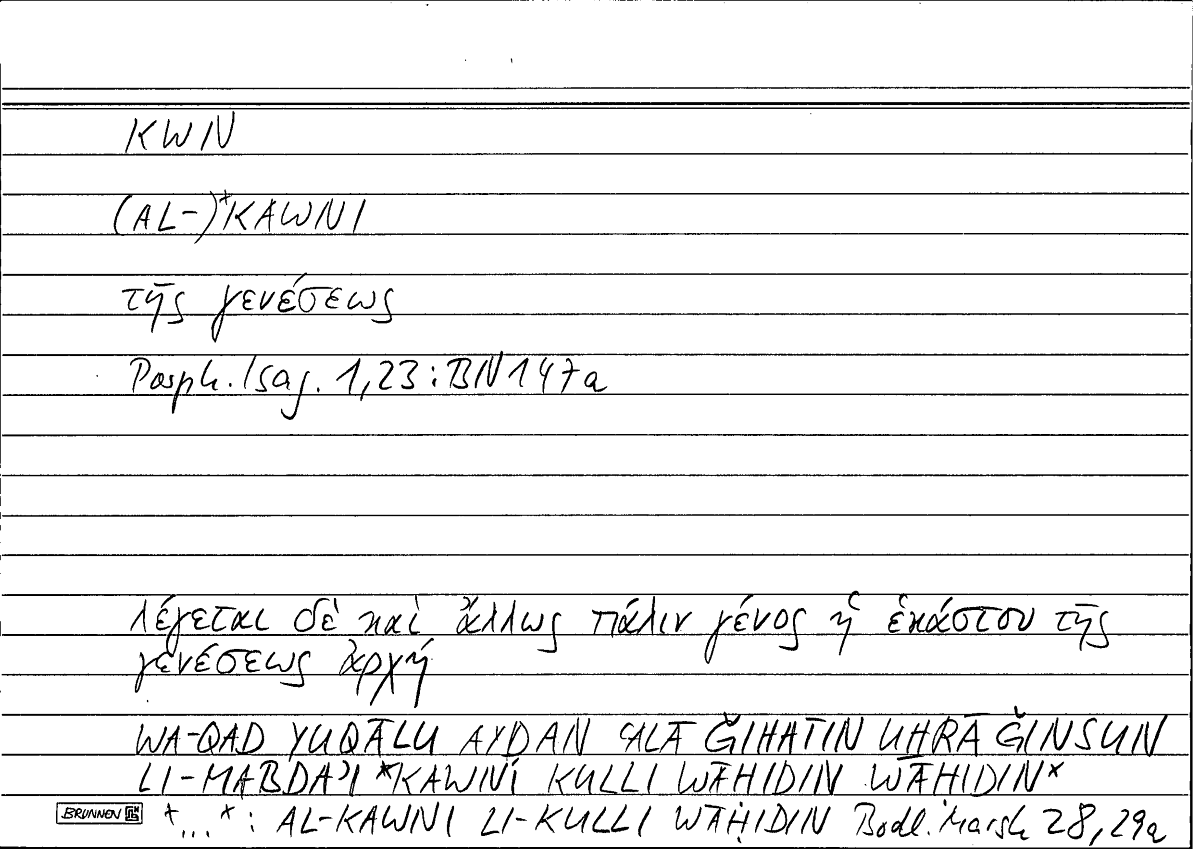 KWN
(AL-)*KAWNI
τῆς γενέσεως
Porph. Isag. 1,23 : BN 147a
λέγεται δὲ καὶ ἄλλως πάλιν γένος ἡ ἑκάστου τῆς
γενέσεως ἀρχή
WA-QAD YUQĀLU AYḌAN ʿALĀ ǦIHATIN UḪRĀ ǦINSUN
LI-MABDAʾI *KAWNI KULLI WĀḤIDIN WĀḤIDIN*
BRUNNEN *...* : AL-KAWNI LI-KULLI WĀḤIDIN Bodl. Marsh 28, 29a